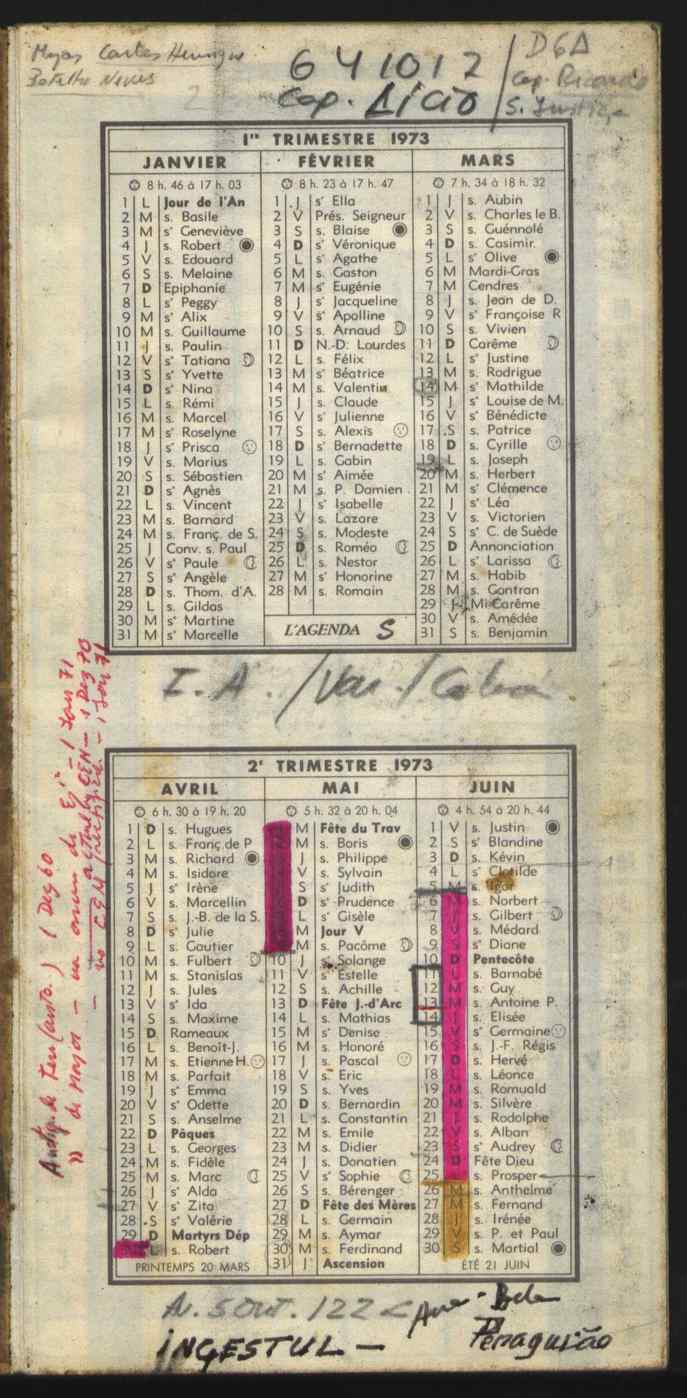 Botelho Neves
641012
Cap. Lício
DGA
Cap. Ricardo
S. Justiça
1er TRIMESTRE 1973
JANVIER
8 h. 46 à 17 h. 03
1 L Jour de l'An
2 M s. Basile
3 M se Geneviève
4 J s. Robert
5 V s. Edouard
6 S s. Melaine
7 D Epiphanie
8 L se Peggy
9 M se Alix
10 M s. Guillaume
11 J s. Paulin
12 V se Tatiana
13 S se Yvette
14 D se Nina
15 L s. Rémi
16 M s. Marcel
17 M se Roselyne
18 J se Prisca
19 V s. Marius
20 S s. Sébastien
21 D se Agnès
22 L s. Vincent
23 M s. Barnard
24 M s. Franç. de S.
25 J Conv. s. Paul
26 V se Paule
27 S se Angèle
28 D s. Thom. d'A.
29 L s. Gildas
30 M se Martine
31 M se Marcelle
FÉVRIER
8 h. 23 à 17 h. 47
1 J se Ella
2 V Prés. Seigneur
3 S s. Blaise
4 D se Véronique
5 L se Agathe
6 M s. Gaston
7 M se Eugénie
8 J se Jacqueline
9 V se Apolline
10 S s. Arnaud
11 D N.-D. Lourdes
12 L s. Félix
13 M se Béatrice
14 M s. Valentin
15 J s. Claude
16 V se Julienne
17 S s. Alexis
18 D se Bernadette
19 L s. Gabin
20 M se Aimée
21 M s. P. Damien
22 J se Isabelle
23 V s. Lazare
24 S s. Modeste
25 D s. Roméo
26 L s. Nestor
27 M se Honorine
28 M s. Romain
L'AGENDA S
MARS
7 h. 34 à 18 h. 32
1 J s. Aubin
2 V s. Charles le B.
3 S s. Guénnolé
4 D s. Casimir
5 L se Olive
6 M Mardi-Gras
7 M Cendres
8 J s. Jean de D.
9 V se Françoise R
10 S s. Vivien
11 D Carême
12 L se Justine
13 M s. Rodrigue
14 M se Mathilde
15 J se Louise de M.
16 V se Bénédicte
17 S s. Patrice
18 D s. Cyrille
19 L s. Joseph
20 M s. Herbert
21 M se Clémence
22 J se Léa
23 V s. Victorien
24 S se C. de Suède
25 D Annonciation
26 L se Larissa
27 M s. Habib
28 M s. Gontran
29 J Mi-Carême
30 V s. Amédée
31 S s. Benjamin
I. A. /
2e TRIMESTRE 1973
AVRIL
6 h. 30 à 19 h. 20
1 D s. Hugues
2 L s. Franç. de P
3 M s. Richard
4 M s. Isidore
5 J se Irène
6 V s. Marcellin
7 S s. J.-B. de la S.
8 D se Julie
9 L s. Gautier
10 M s. Fulbert
11 M s. Stanislas
12 J s. Jules
13 V se Ida
14 S s. Maxime
15 D Rameaux
16 L s. Benoît-J.
17 M s. Etienne H.
18 M s. Parfait
19 J se Emma
20 V se Odette
21 S s. Anselme
22 D Pâques
23 L s. Georges
24 M s. Fidèle
25 M s. Marc
26 J se Alda
27 V se Zita
28 S se Valérie
29 D Martyrs Dép
L s. Robert
PRINTEMPS 20 MARS
MAI
5 h. 32 à 20 h. 04
M Fête du Trav
M s. Boris
J s. Philippe
V s. Sylvain
S se Judith
D se Prudence
L se Gisèle
M Jour V
M s. Pacôme
10 J se Solange
11 V se Estelle
12 S s. Achille
13 D Fête J.-d'Arc
14 L s. Mathias
15 M se Denise
16 M s. Honoré
17 J s. Pascal
18 V s. Eric
19 S s. Yves
20 D s. Bernardin
21 L s. Constantin
22 M s. Emile
23 M s. Didier
24 J s. Donatien
25 V se Sophie
26 S s. Bérenger
27 D Fête des Mères
28 L s. Germain
29 M s. Aymar
30 M s. Ferdinand
31 J Ascension
JUIN
4 h. 54 à 20 h. 44
1 V s. Justin
2 S se Blandine
3 D s. Kévin
4 L se Clotilde
5 M s. Igor
6 M s. Norbert
7 J s. Gilbert
8 V s. Médard
9 S se Diane
10 D Pentecôte
11 L s. Barnabé
12 M s. Guy
13 M s. Antoine P.
14 J s. Elisée
15 V se Germaine
16 S s. J.-F. Régis
17 D s. Hervé
18 L s. Léonce
19 M s. Romuald
20 M s. Silvère
21 J s. Rodolphe
22 V s. Alban
23 S se Audrey
24 D Fête Dieu
25 L s. Prosper
26 M s. Anthelme
27 M s. Fernand
28 J s. Irénée
29 V s. P. et Paul
30 S s. Martial
ÉTÉ 21 JUIN
1 Dez 60
1 Jan 71
1 Dez 70
1 Jan 71
INGESTUL —
Penaguião